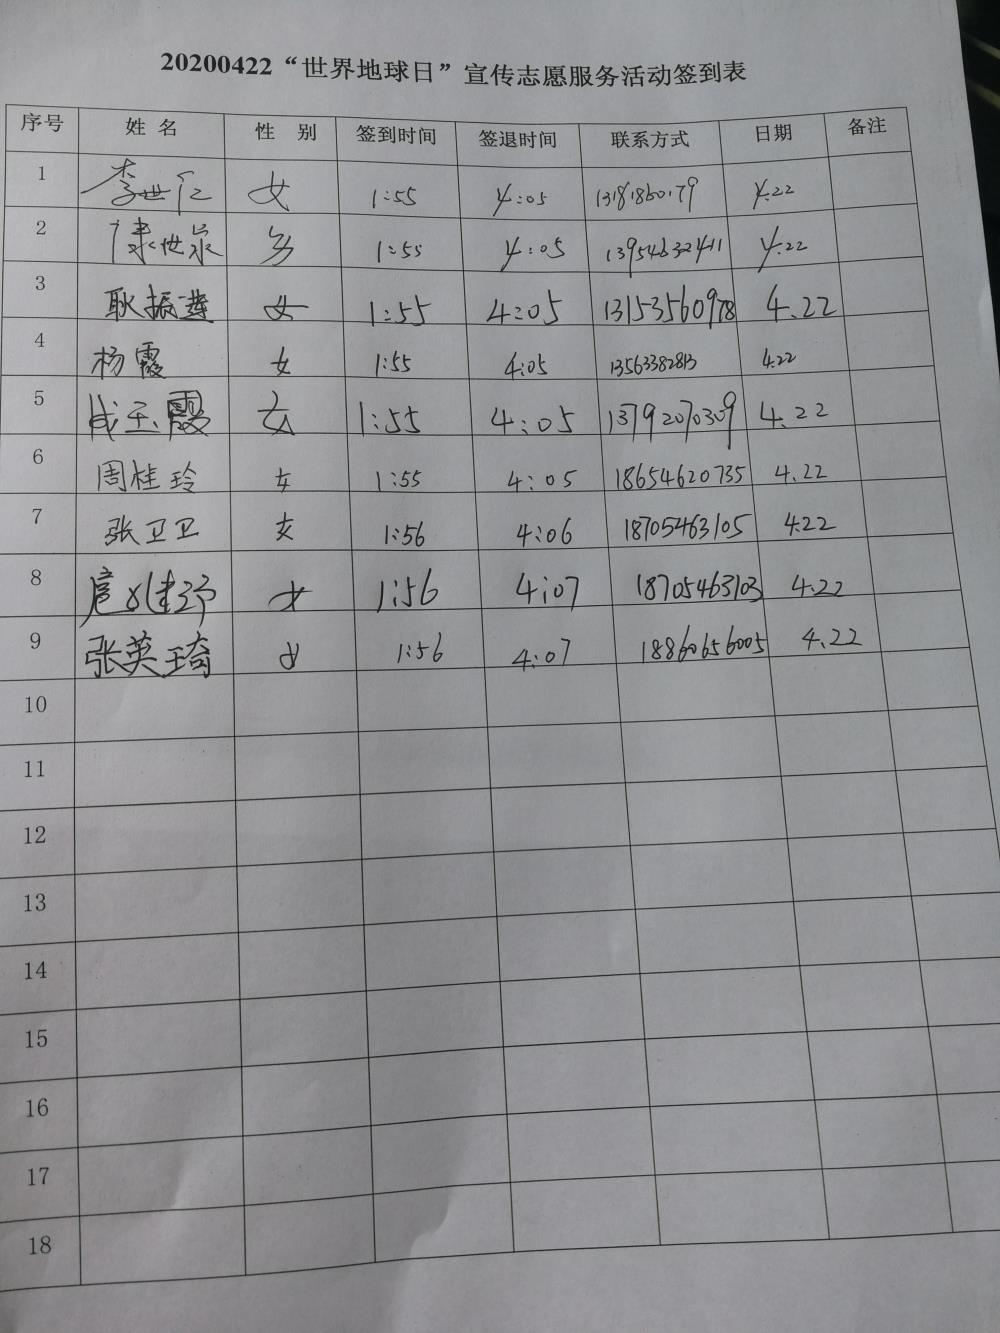 20200422“世界地球日”宣传志愿服务活动签到表
序号 姓名 性别 签到时间 签退时间 联系方式 日期 备注
1 李世仁 女 1:55 4:05 13181860179 4.22
2 1:55 4:05 13954632411 4.22
3 耿振莲 女 1:55 4:05 13153560978 4.22
4 杨霞 女 1:55 4:05 13563382813 4.22
5 成玉霞 女 1:55 4:05 13792070309 4.22
6 周桂玲 女 1:55 4:05 18654620735 4.22
7 张卫卫 女 1:56 4:06 18705463105 4.22
8 女 1:56 4:07 18705463103 4.22
9 张英琦 女 1:56 4:07 18860656005 4.22
10
11
12
13
14
15
16
17
18